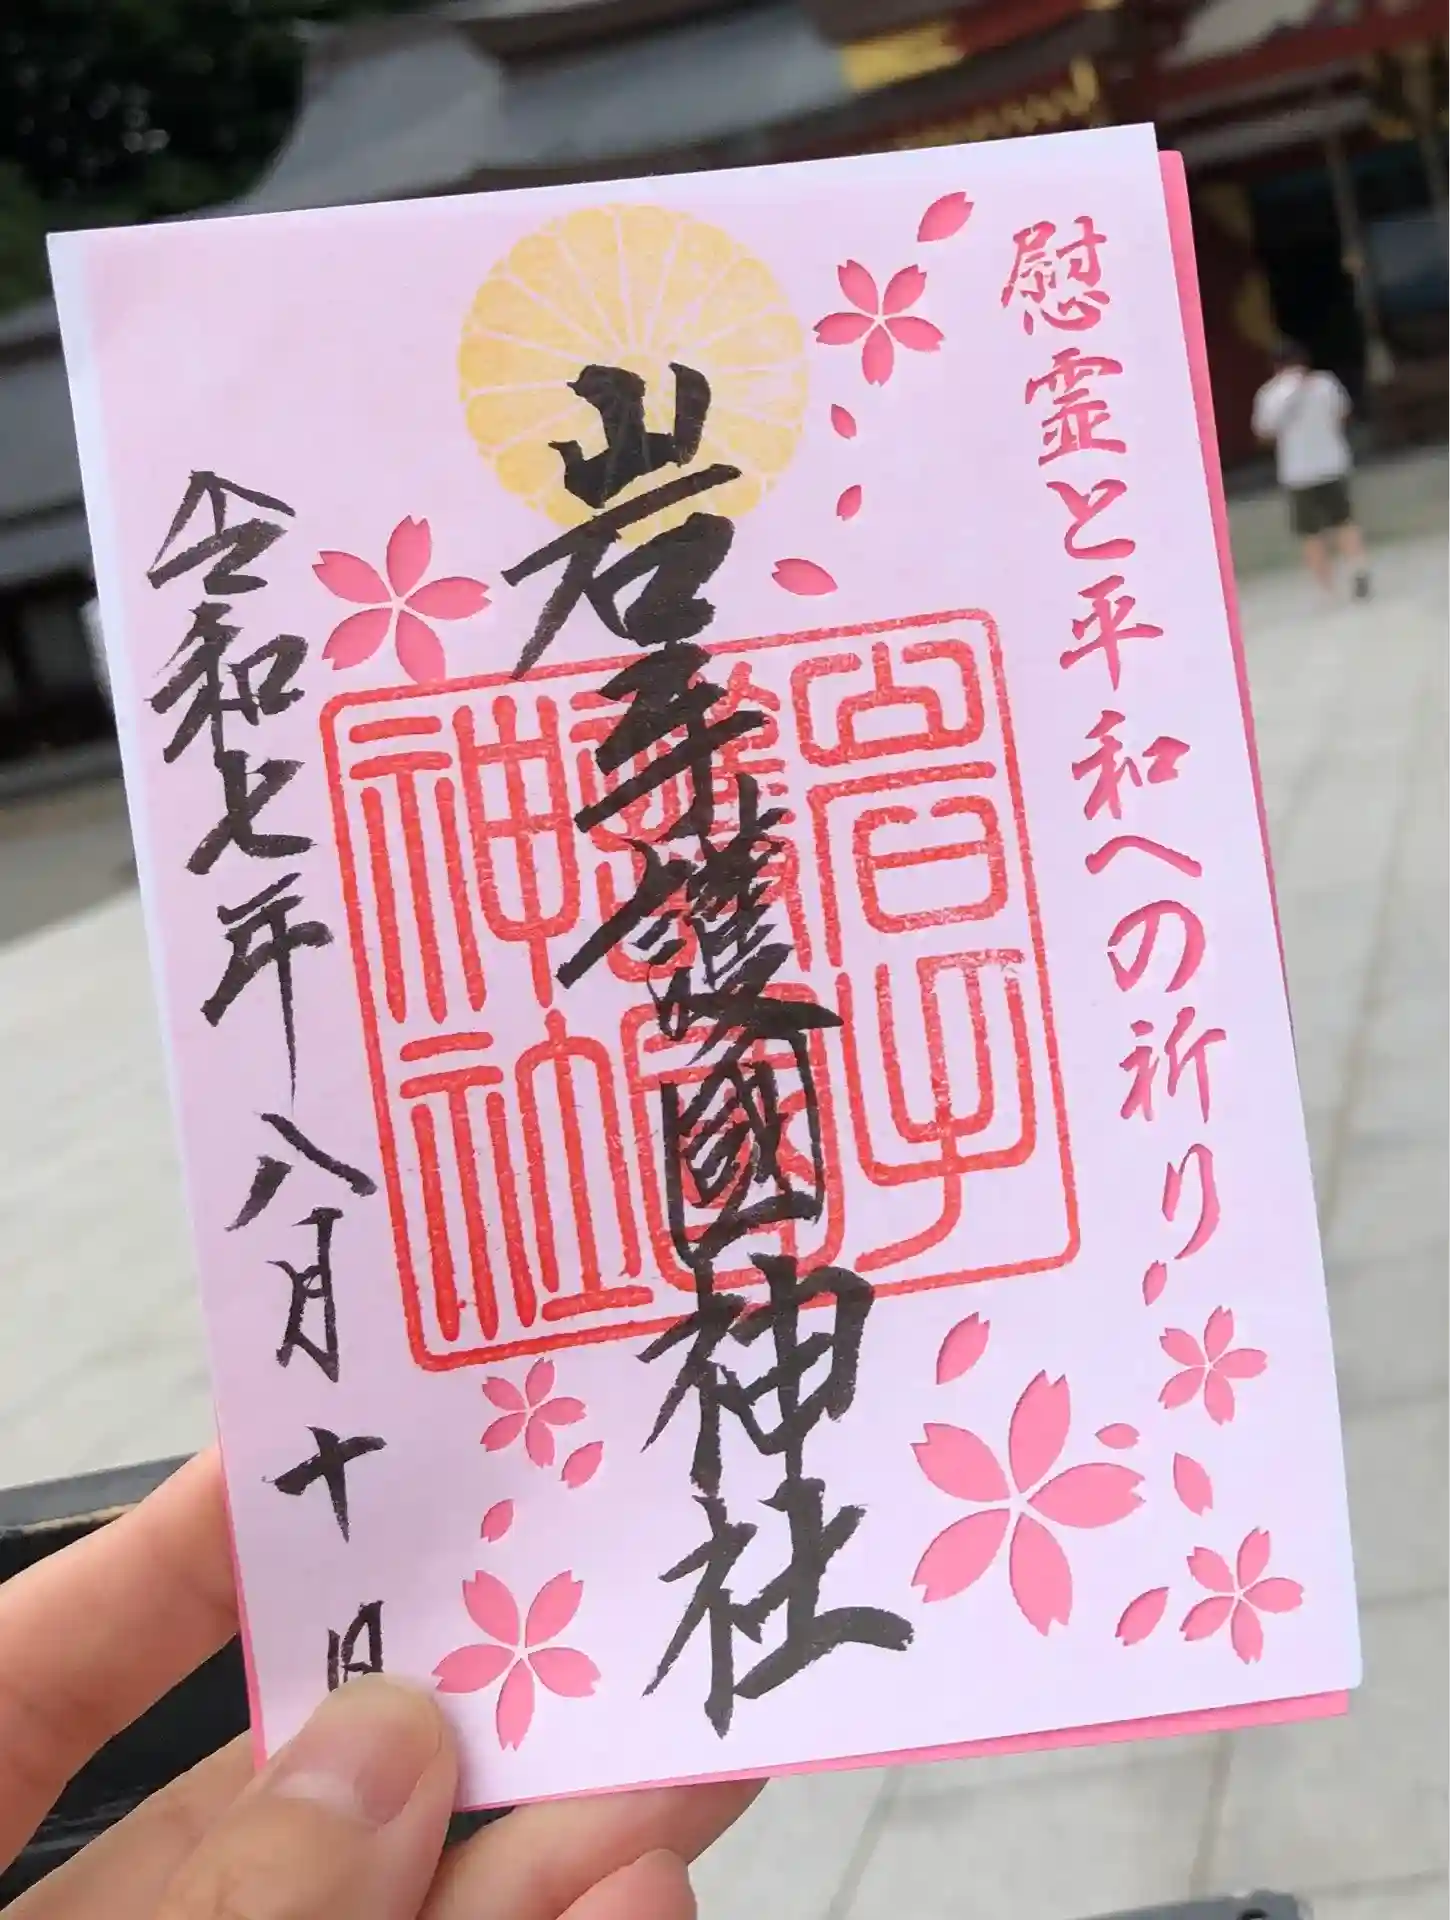 慰霊と平和への祈り
岩手護國神社
岩手護國神社
令和七年八月十日